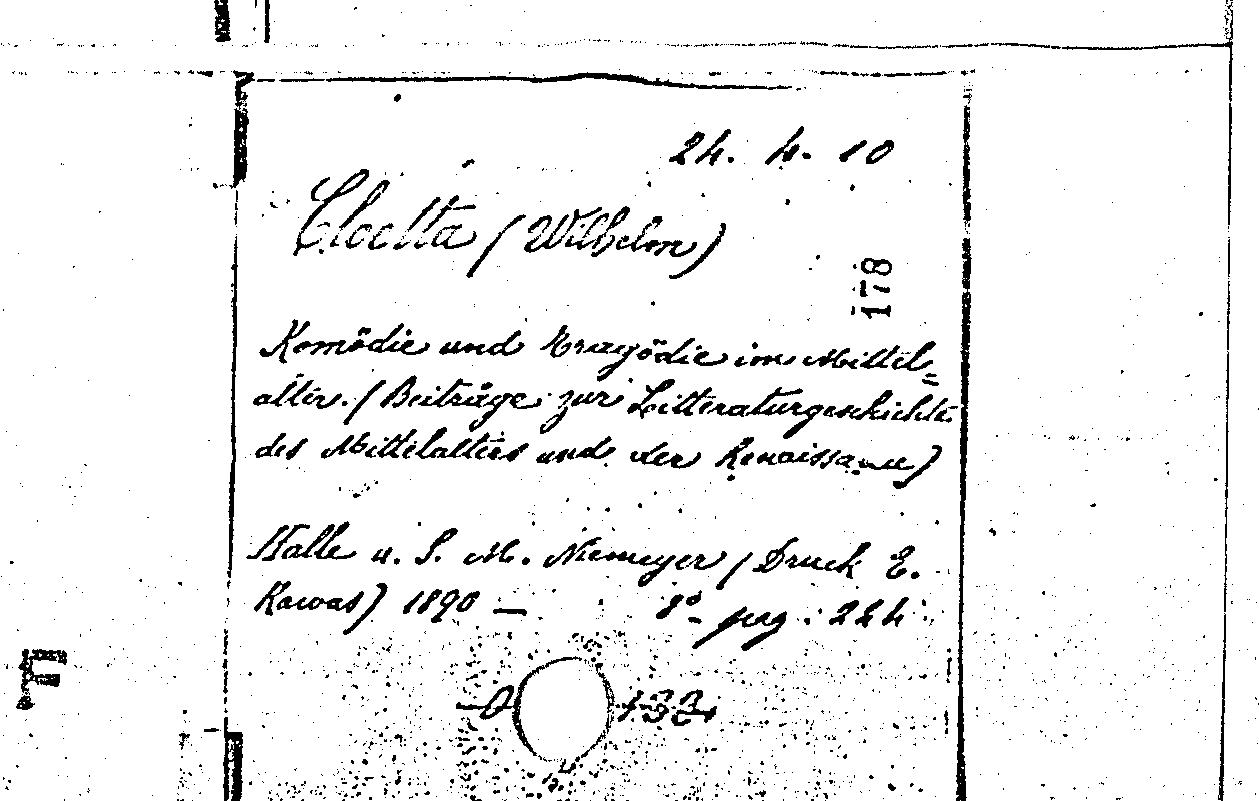 24. 4. 10
Cloetta (Wilhelm)
178
Komödie und Tragödie im Mittel=
alter. (Beiträge zur Litteraturgeschichte
des Mittelalters und der Renaissance)
Halle a. S. M. Niemeyer (Druck E.
Karras) 1890 —
8º pag. 224
F